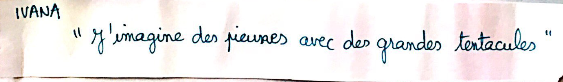 IVANA
" J'imagine des pieuvres avec des grandes tentacules "